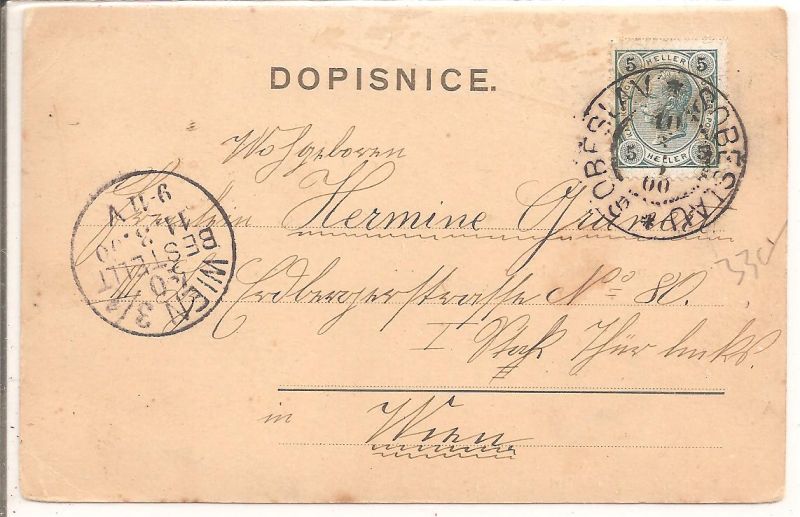 DOPISNICE.
5 HELLER 5
5 HELLER 5
SOBĚSLAV * SOBESLAU *
Wohlgeboren
Fräulein Hermine
Erdbergerstrasse No 80.
I Stock Thür links.
in Wien
WIEN 3/2
BESTELLT
9-11 V
330